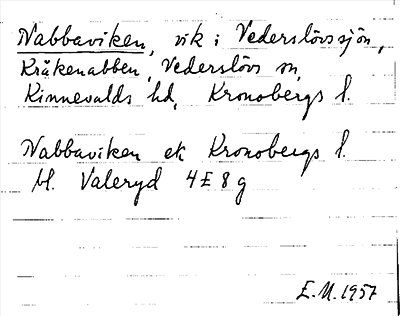 Nabbaviken, vik i Vederslövssjön,
Kråkenabben, Vederslövs sn,
Kinnevalds hd, Kronobergs l.
Nabbaviken ek Kronobergs l.
bl. Valeryd 4 E 8 g
E.M. 1957